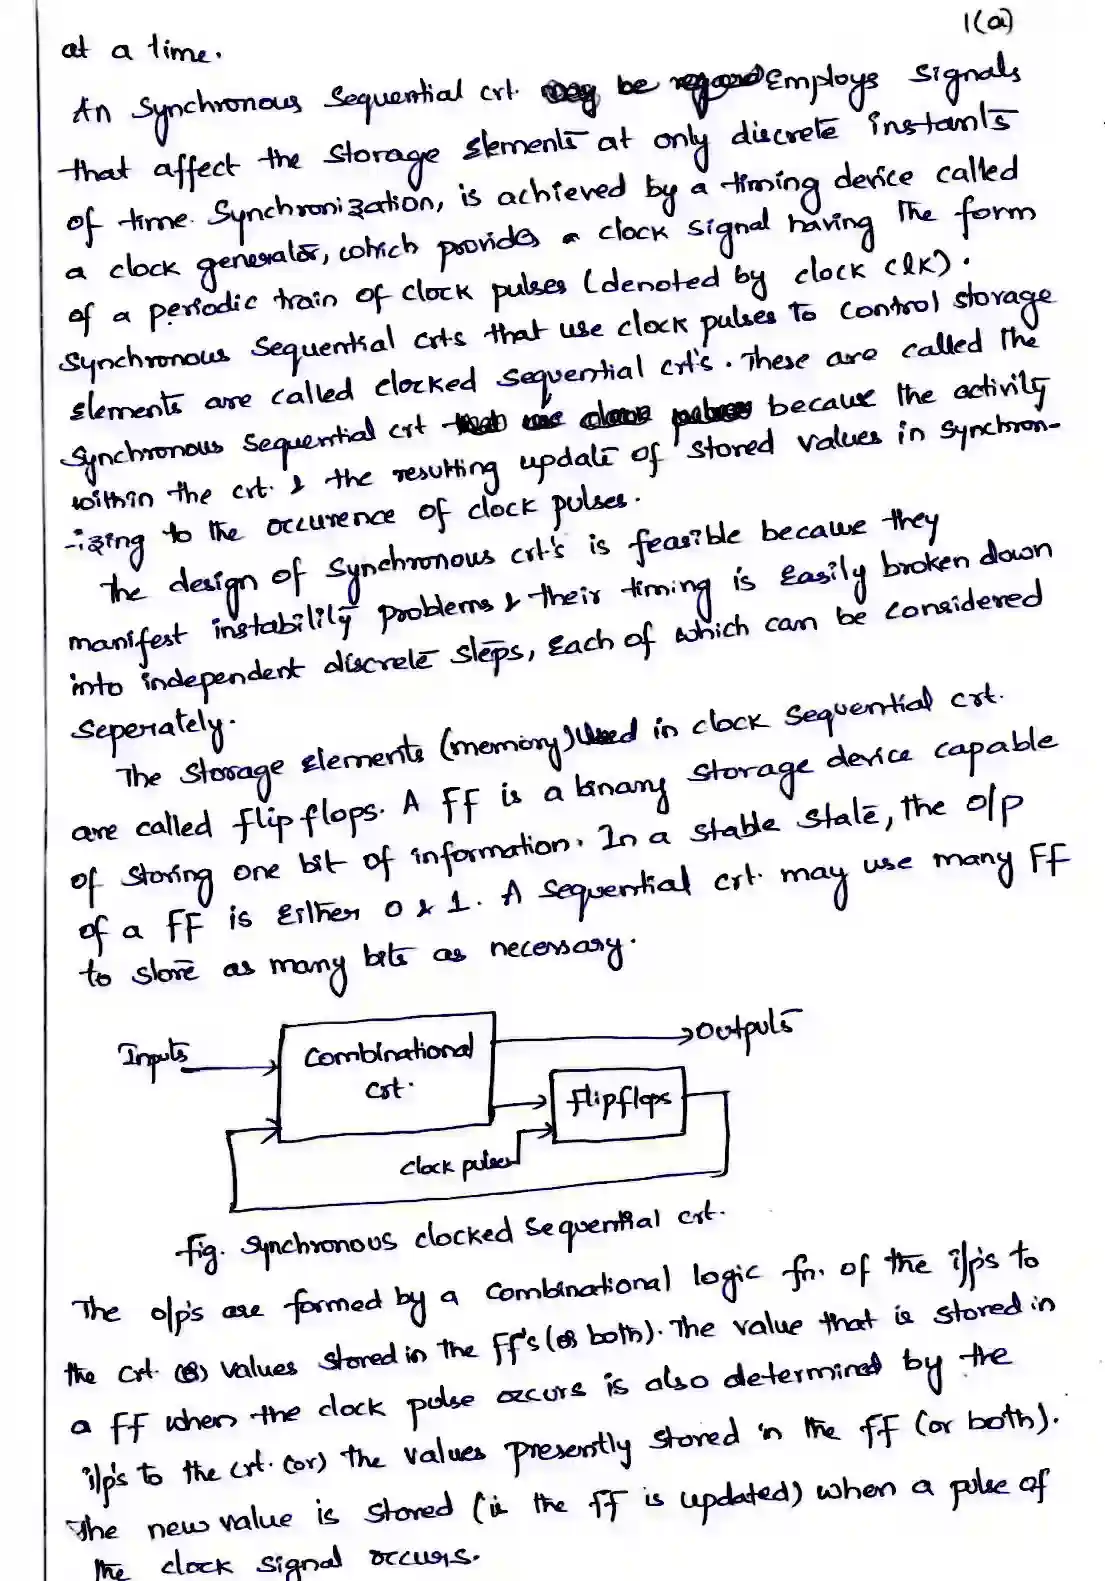 1(a)
at a time.
An Synchronous Sequential crt. may be regard Employs signals
that affect the storage elements at only discrete instants
of time. Synchronization, is achieved by a timing device called
a clock generator, which provides a clock signal having the form
of a periodic train of clock pulses (denoted by clock clk).
Synchronous Sequential crts that use clock pulses to control storage
elements are called clocked sequential crt's. These are called the
Synchronous Sequential crt that use clock pulses because the activity
within the crt. & the resulting update of stored values in synchron-
-izing to the occurence of clock pulses.
The design of synchronous crt's is feasible because they
manifest instability problems & their timing is Easily broken down
into independent discrete steps, Each of which can be considered
seperately.
The storage elements (memory) Used in clock Sequential crt.
are called flip flops. A FF is a binary storage device capable
of storing one bit of information. In a stable state, the o/p
of a FF is Either 0 & 1. A Sequential crt. may use many FF
to store as many bits as necessary.
Inputs
Combinational
crt.
Outputs
flipflops
clock pulses
fig. Synchronous clocked Sequential crt.
The o/p's are formed by a Combinational logic fn. of the i/p's to
the crt. (or) values stored in the FF's (or both). The value that is stored in
a FF when the clock pulse occurs is also determined by the
i/p's to the crt. (or) the values presently stored in the FF (or both).
The new value is stored (ie the FF is updated) when a pulse of
the clock signal occurs.